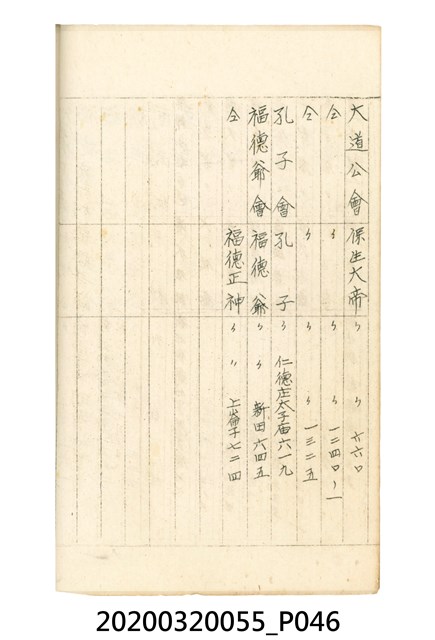 大道公會 保生大帝 〃 〃 六六口
仝 〃 〃 〃 一二四口ノ一
仝 〃 〃 〃 一三二五
孔子會 孔子 〃 仁德庄太子庙六一九
福德爺會 福德爺 〃 〃 新田六四五
仝 福德正神 〃 〃 上崙子七二四
20200320055_P046